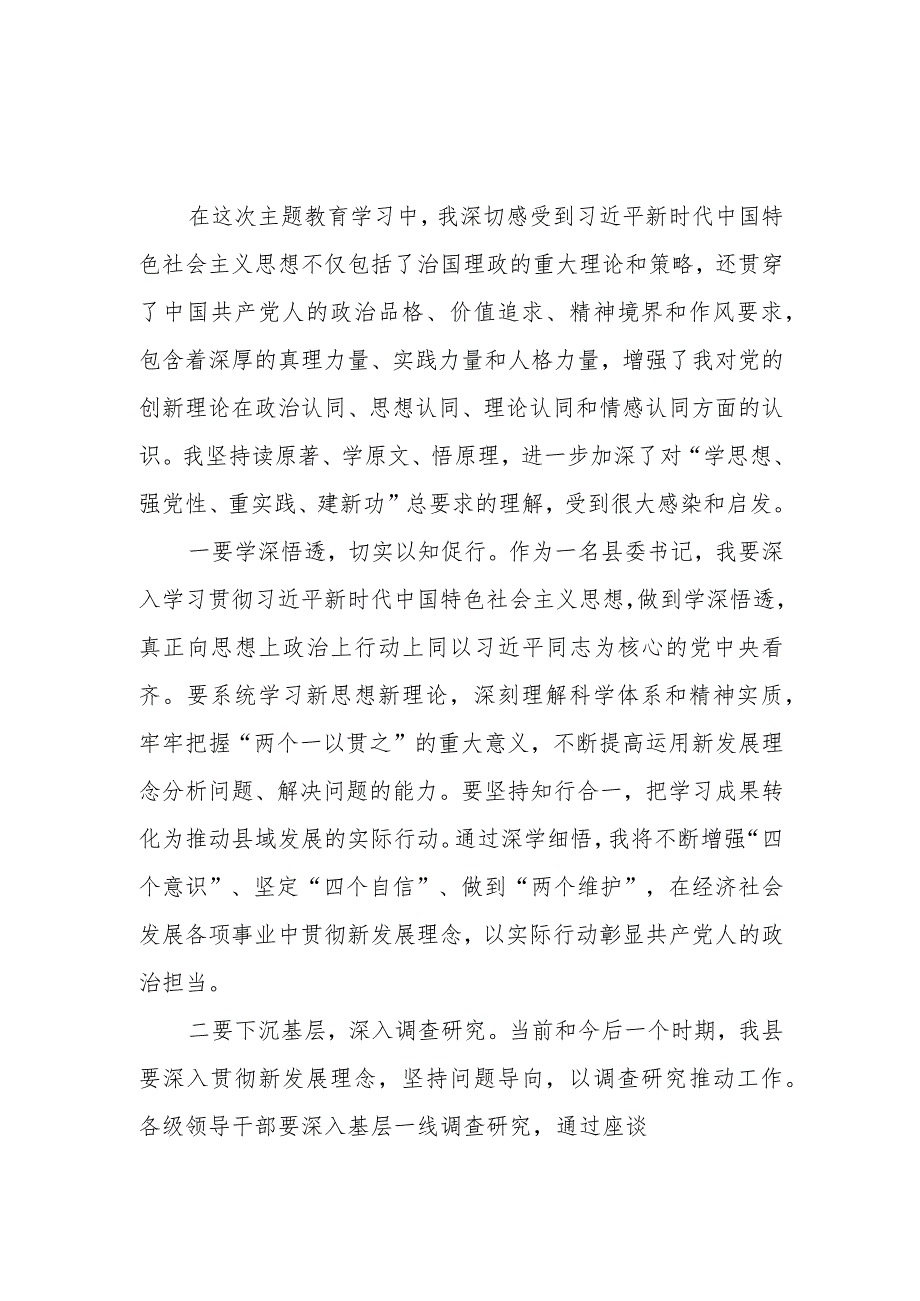 在这次主题教育学习中，我深切感受到习近平新时代中国特
色社会主义思想不仅包括了治国理政的重大理论和策略，还贯穿
了中国共产党人的政治品格、价值追求、精神境界和作风要求，
包含着深厚的真理力量、实践力量和人格力量，增强了我对党的
创新理论在政治认同、思想认同、理论认同和情感认同方面的认
识。我坚持读原著、学原文、悟原理，进一步加深了对“学思想、
强党性、重实践、建新功”总要求的理解，受到很大感染和启发。
一要学深悟透，切实以知促行。作为一名县委书记，我要深
入学习贯彻习近平新时代中国特色社会主义思想，做到学深悟透，
真正向思想上政治上行动上同以习近平同志为核心的党中央看
齐。要系统学习新思想新理论，深刻理解科学体系和精神实质，
牢牢把握“两个一以贯之”的重大意义，不断提高运用新发展理
念分析问题、解决问题的能力。要坚持知行合一，把学习成果转
化为推动县域发展的实际行动。通过深学细悟，我将不断增强“四
个意识”、坚定“四个自信”、做到“两个维护”，在经济社会
发展各项事业中贯彻新发展理念，以实际行动彰显共产党人的政
治担当。
二要下沉基层，深入调查研究。当前和今后一个时期，我县
要深入贯彻新发展理念，坚持问题导向，以调查研究推动工作。
各级领导干部要深入基层一线调查研究，通过座谈